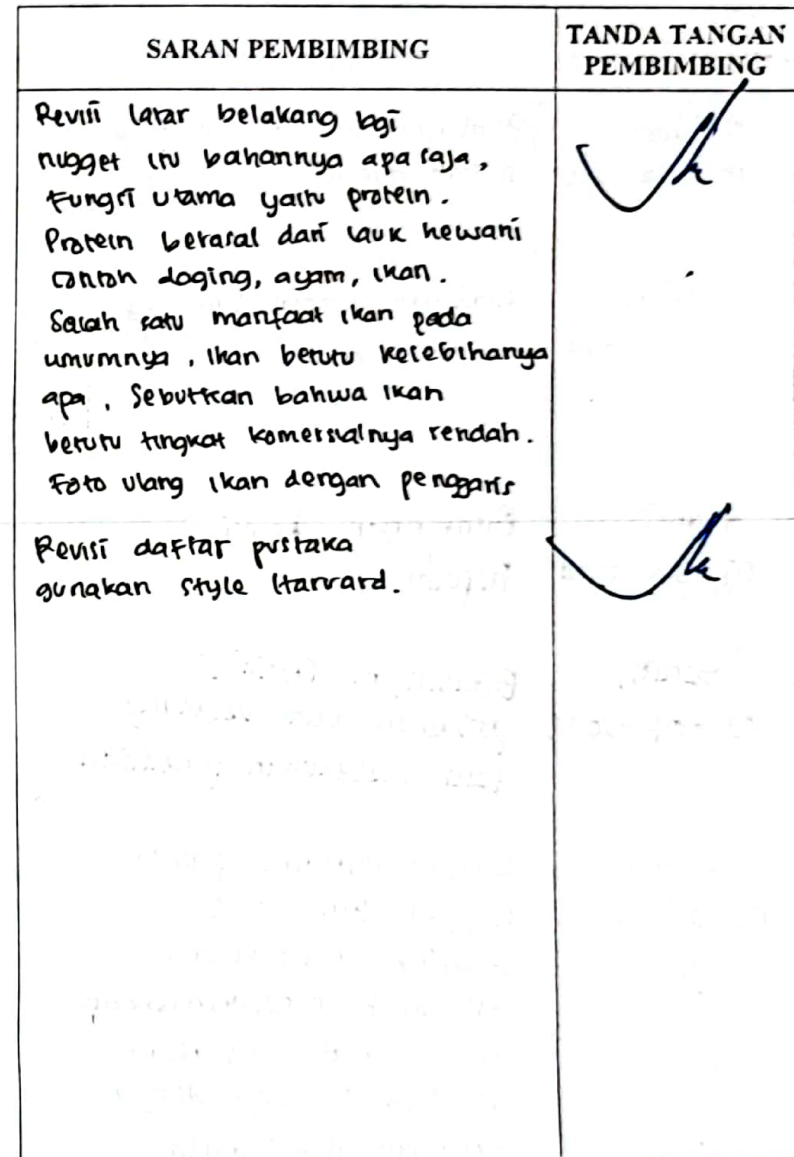 SARAN PEMBIMBING
TANDA TANGAN
PEMBIMBING
Revisi latar belakang bgi
nugget itu bahannya apa saja,
Fungsi utama yaitu protein.
Protein berasal dari lauk hewani
contoh daging, ayam, ikan.
Salah satu manfaat ikan pada
umumnya, Ikan betutu kelebihanya
apa, Sebutkan bahwa ikan
betutu tingkat komersialnya rendah.
Foto ulang ikan dengan penggaris
Revisi daftar pustaka
gunakan style Harvard.